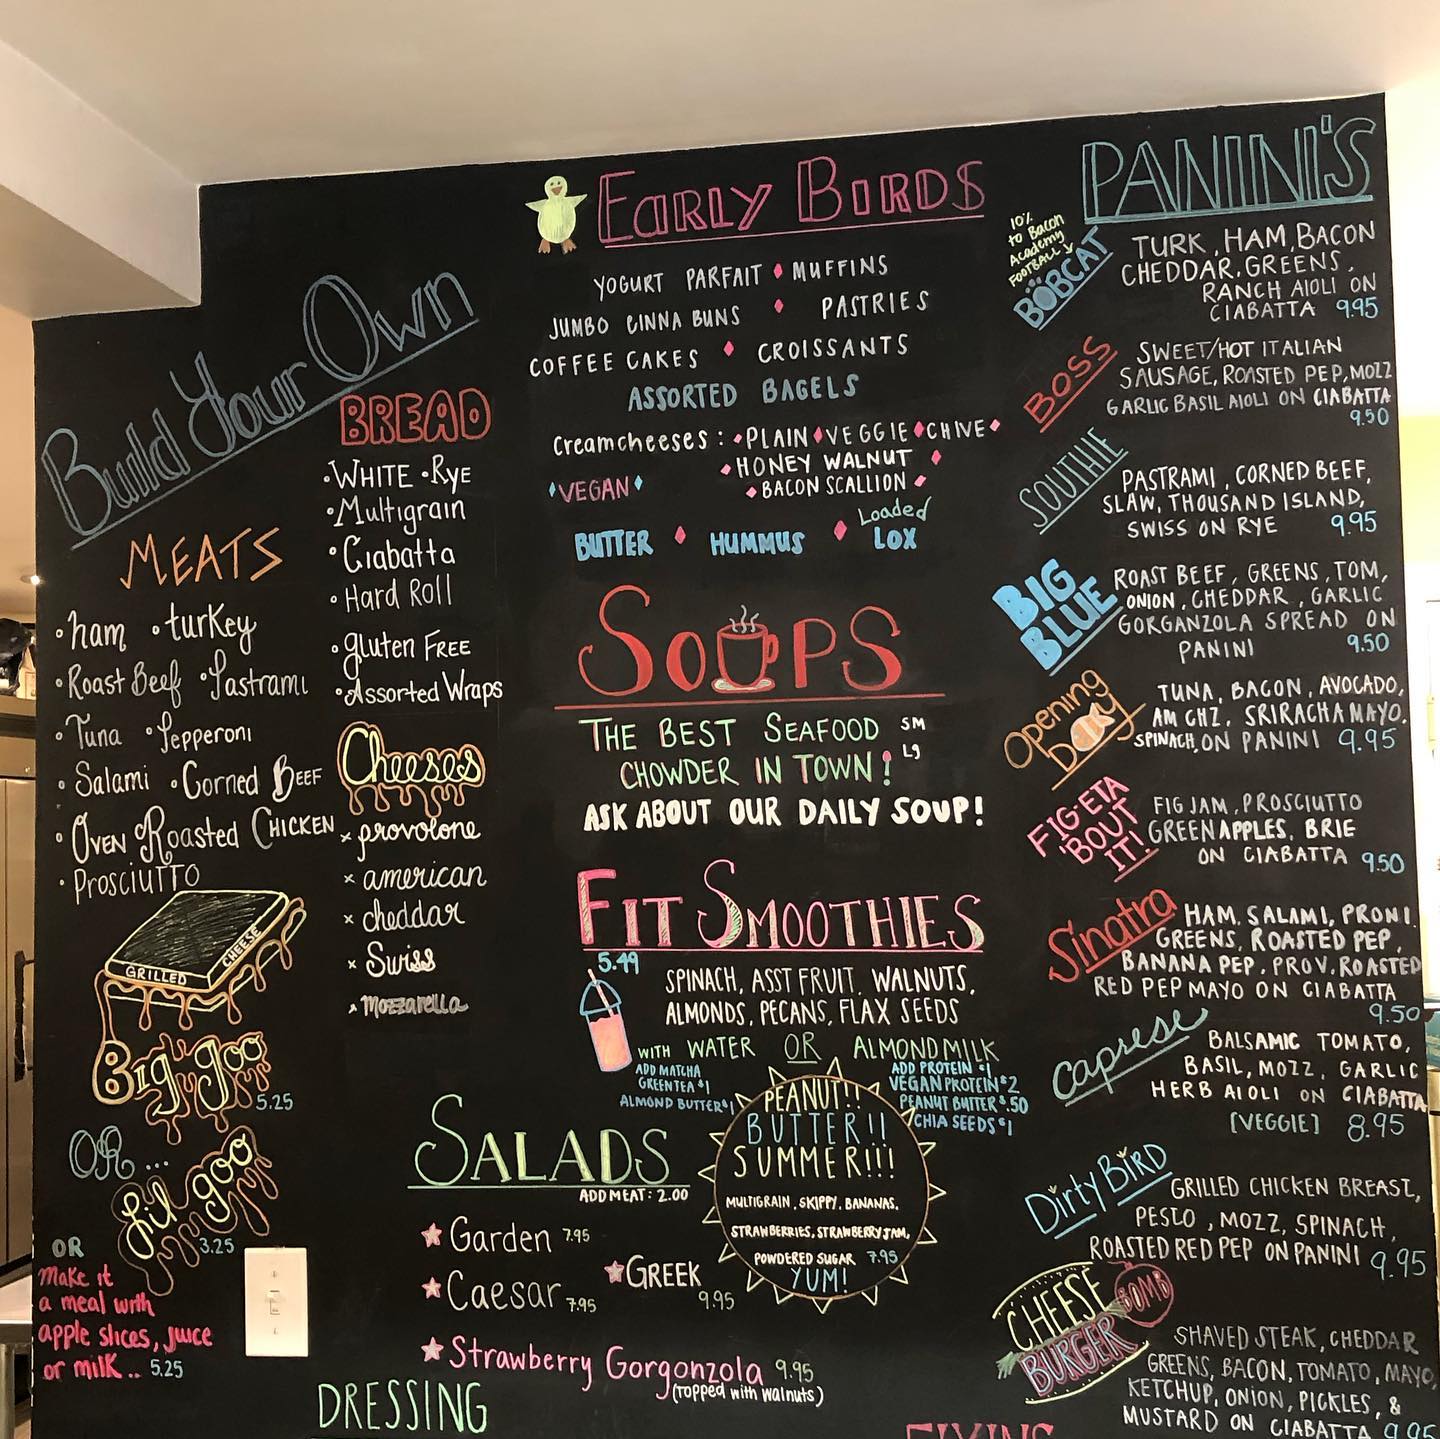 Build Your Own
MEATS
• ham • turkey
• Roast Beef • Pastrami
• Tuna • Pepperoni
• Salami • Corned Beef
• Oven Roasted Chicken
• Prosciutto
BREAD
• WHITE • Rye
• Multigrain
• Ciabatta
• Hard Roll
• gluten FREE
• Assorted Wraps
Cheeses
x provolone
x american
x cheddar
x Swiss
x mozzarella
GRILLED CHEESE
Big goo
5.25
OR...
Lil goo
3.25
OR
Make it
a meal with
apple slices, juice
or milk.. 5.25
EARLY BIRDS
YOGURT PARFAIT ♦ MUFFINS
JUMBO CINNA BUNS ♦ PASTRIES
COFFEE CAKES ♦ CROISSANTS
ASSORTED BAGELS
Creamcheeses: ♦ PLAIN ♦ VEGGIE ♦ CHIVE ♦
♦ HONEY WALNUT ♦
♦ VEGAN ♦ ♦ BACON SCALLION ♦
BUTTER ♦ HUMMUS ♦ Loaded LOX
SOUPS
THE BEST SEAFOOD SM
CHOWDER IN TOWN! Lg
ASK ABOUT OUR DAILY SOUP!
FIT SMOOTHIES
5.49
SPINACH, ASST FRUIT, WALNUTS,
ALMONDS, PECANS, FLAX SEEDS
WITH WATER OR ALMONDMILK
ADD MATCHA
GREEN TEA $1
ALMOND BUTTER $1
ADD PROTEIN $1
VEGAN PROTEIN $2
PEANUT BUTTER $.50
CHIA SEEDS $1
PEANUT!!
BUTTER!!
SUMMER!!!
MULTIGRAIN, SKIPPY, BANANAS,
STRAWBERRIES, STRAWBERRY JAM,
POWDERED SUGAR 7.95
YUM!
SALADS
ADD MEAT: 2.00
★ Garden 7.95
★ Caesar 7.95
★ GREEK 9.95
★ Strawberry Gorgonzola 9.95
(Topped with walnuts)
DRESSING
PANINI'S
10%
to Bacon
Academy
FOOTBALL
BOBCAT
TURK, HAM, BACON
CHEDDAR, GREENS,
RANCH AIOLI ON
CIABATTA 9.95
BOSS
SWEET/HOT ITALIAN
SAUSAGE, ROASTED PEP, MOZZ
GARLIC BASIL AIOLI ON CIABATTA
9.50
SOUTHIE
PASTRAMI, CORNED BEEF,
SLAW, THOUSAND ISLAND,
SWISS ON RYE 9.95
BIG BLUE
ROAST BEEF, GREENS, TOM,
ONION, CHEDDAR, GARLIC
GORGANZOLA SPREAD ON
PANINI 9.50
Opening Day
TUNA, BACON, AVOCADO,
AM CHZ, SRIRACHA MAYO,
SPINACH, ON PANINI 9.95
FIG-ETA
'BOUT
IT!
FIG JAM, PROSCIUTTO
GREEN APPLES, BRIE
ON CIABATTA 9.50
Sinatra
HAM, SALAMI, PRONI
GREENS, ROASTED PEP,
BANANA PEP, PROV, ROASTED
RED PEP MAYO ON CIABATTA
9.50
Caprese
BALSAMIC TOMATO,
BASIL, MOZZ, GARLIC
HERB AIOLI ON CIABATTA
[VEGGIE] 8.95
Dirty Bird
GRILLED CHICKEN BREAST,
PESTO, MOZZ, SPINACH,
ROASTED RED PEP ON PANINI 9.95
CHEESE
BURGER
BOMB
SHAVED STEAK, CHEDDAR
GREENS, BACON, TOMATO, MAYO,
KETCHUP, ONION, PICKLES, &
MUSTARD ON CIABATTA 9.95